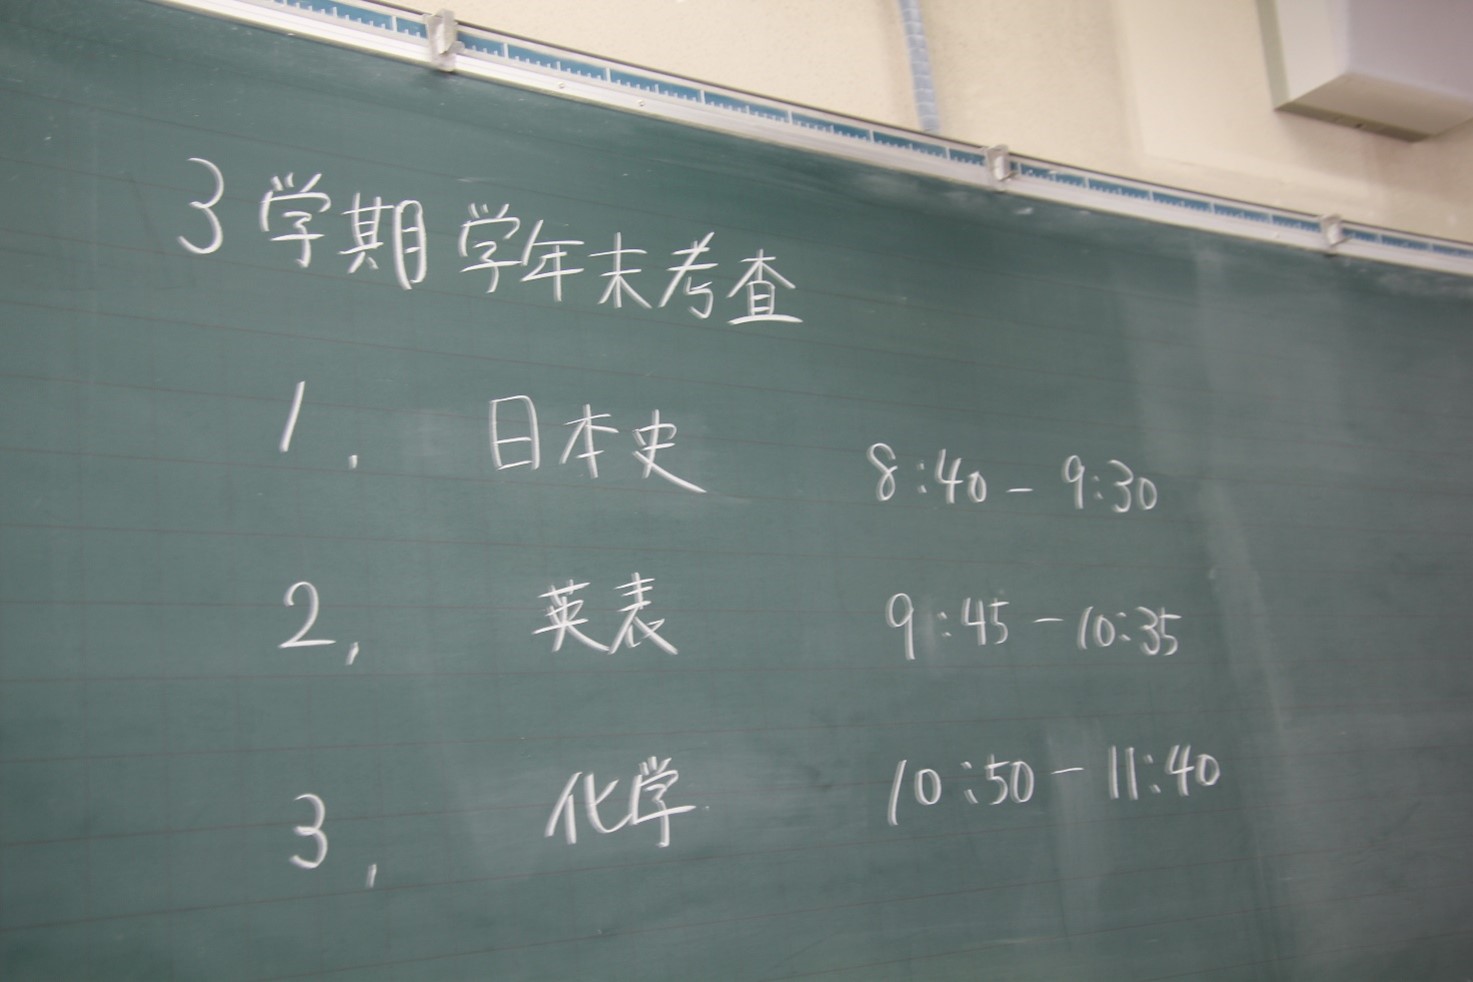 3学期 学年末考査
1. 日本史 8:40 - 9:30
2, 英表 9:45 - 10:35
3, 化学 10:50 - 11:40